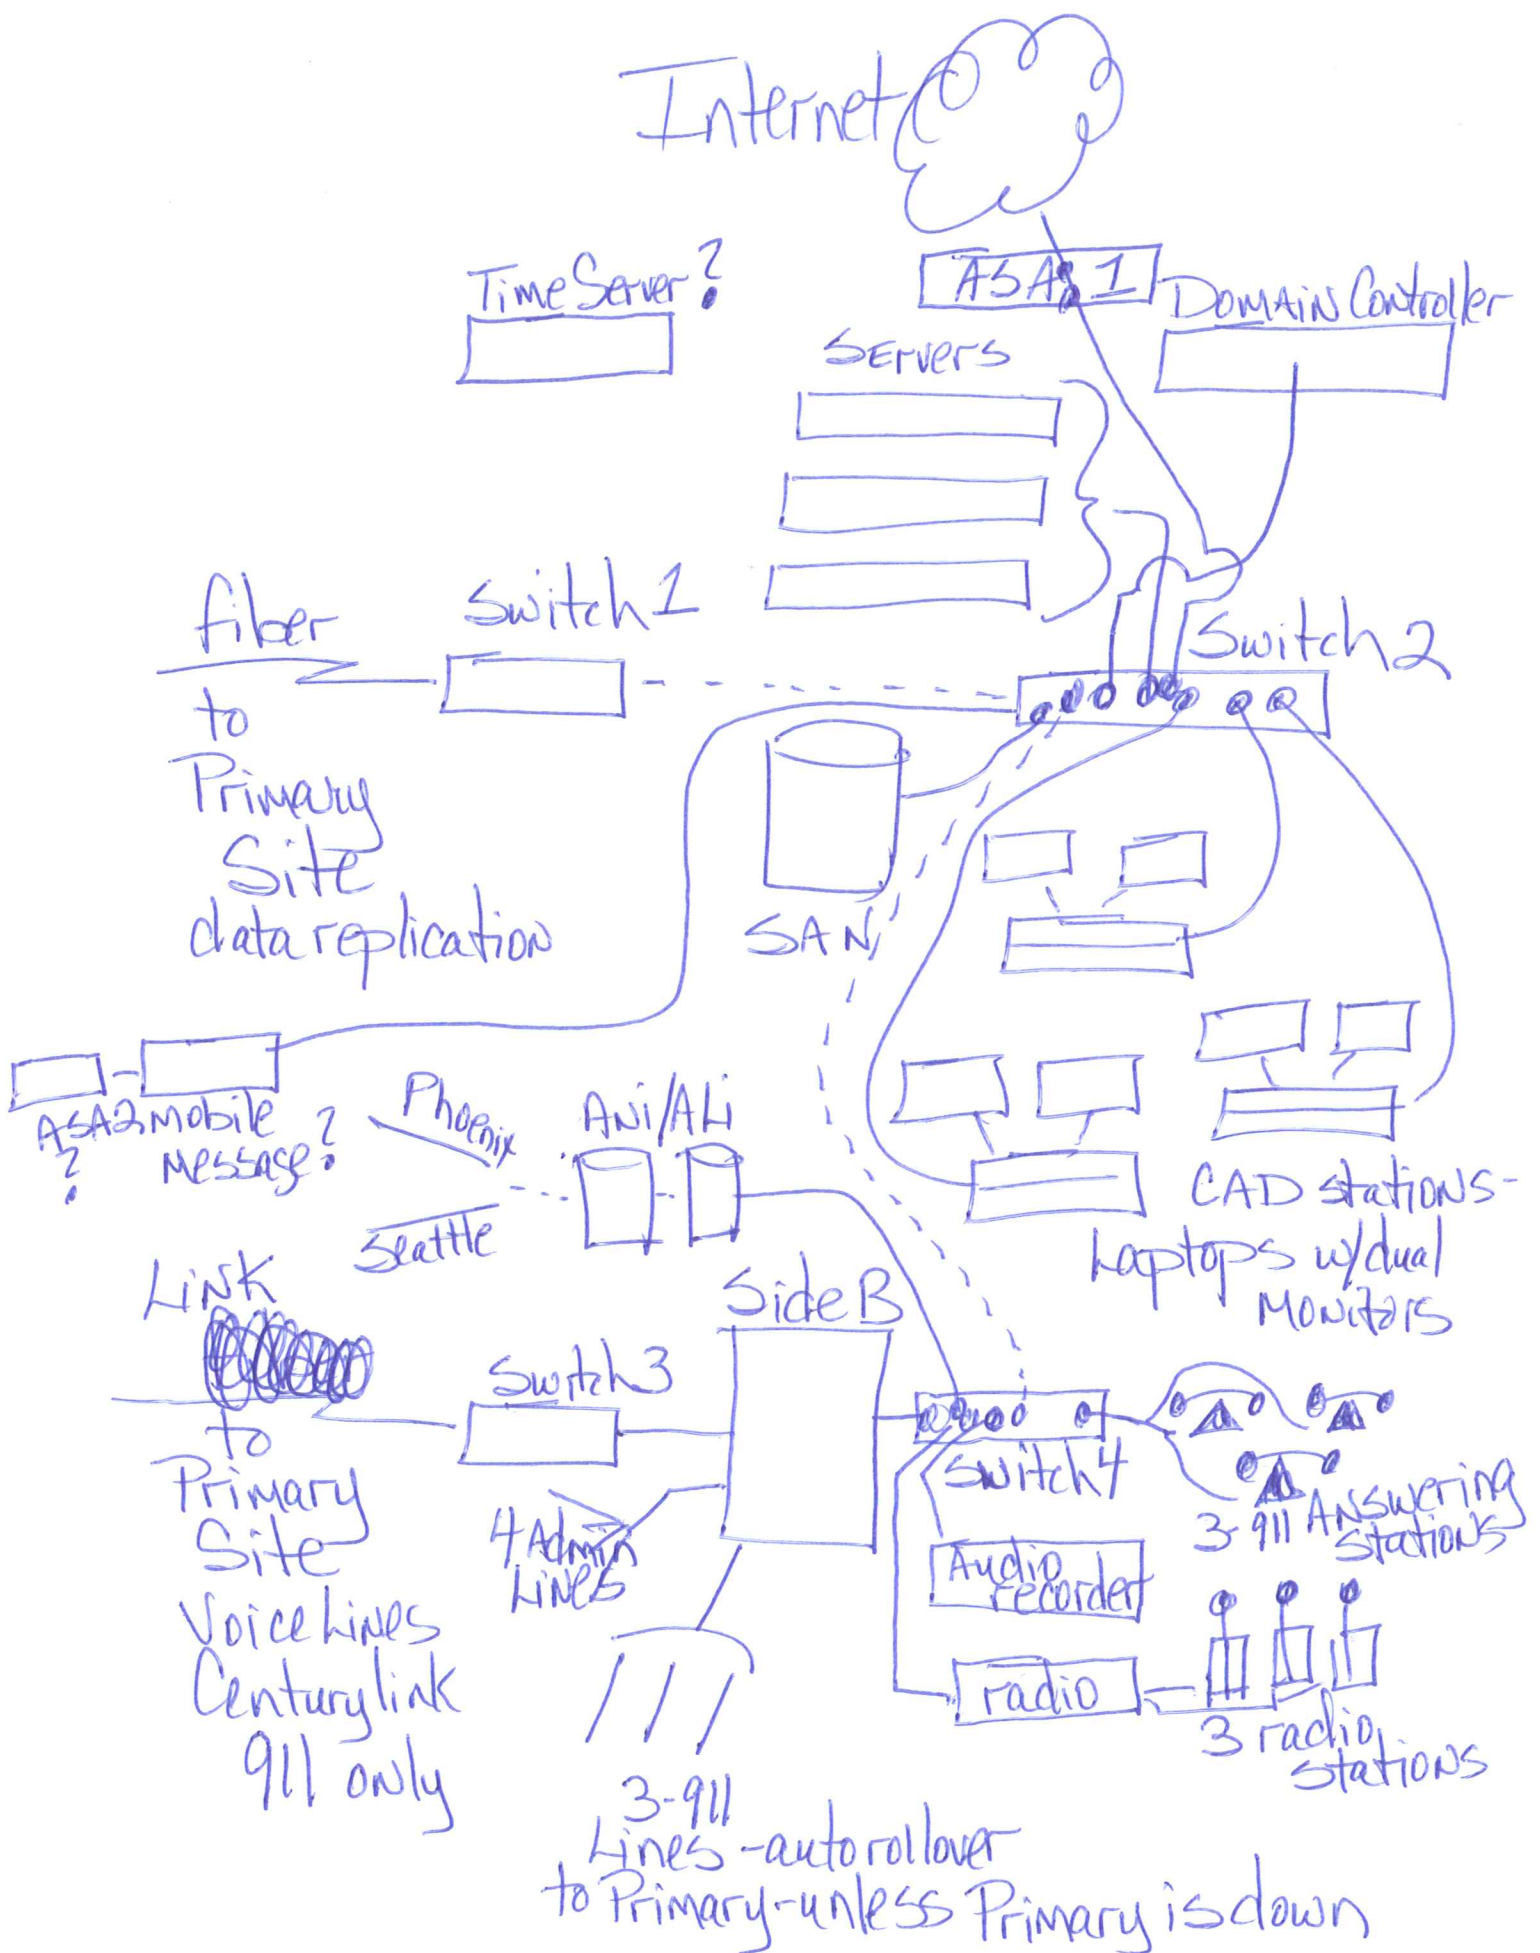 Internet
Time Server?
ASA 1
Domain Controller
Servers
fiber
Switch 1
Switch 2
to
Primary
Site
data replication
SAN
ASA2
?
Mobile
Message?
Phoenix
Seattle
Ani/ALi
CAD stations-
Laptops w/dual
Monitors
Link
to
Primary
Site
Voice Lines
Centurylink
911 only
Switch 3
Side B
Switch 4
4 Admin
Lines
3-911 Answering
stations
Audio
recorder
radio
3 radio
stations
3-911
Lines-autorollover
to Primary-unless Primary is down